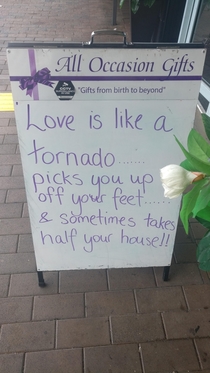 All Occasion Gifts
"Gifts from birth to beyond"
Love is like a
tornado.......
picks you up
off your feet......
& sometimes takes
half your house!!